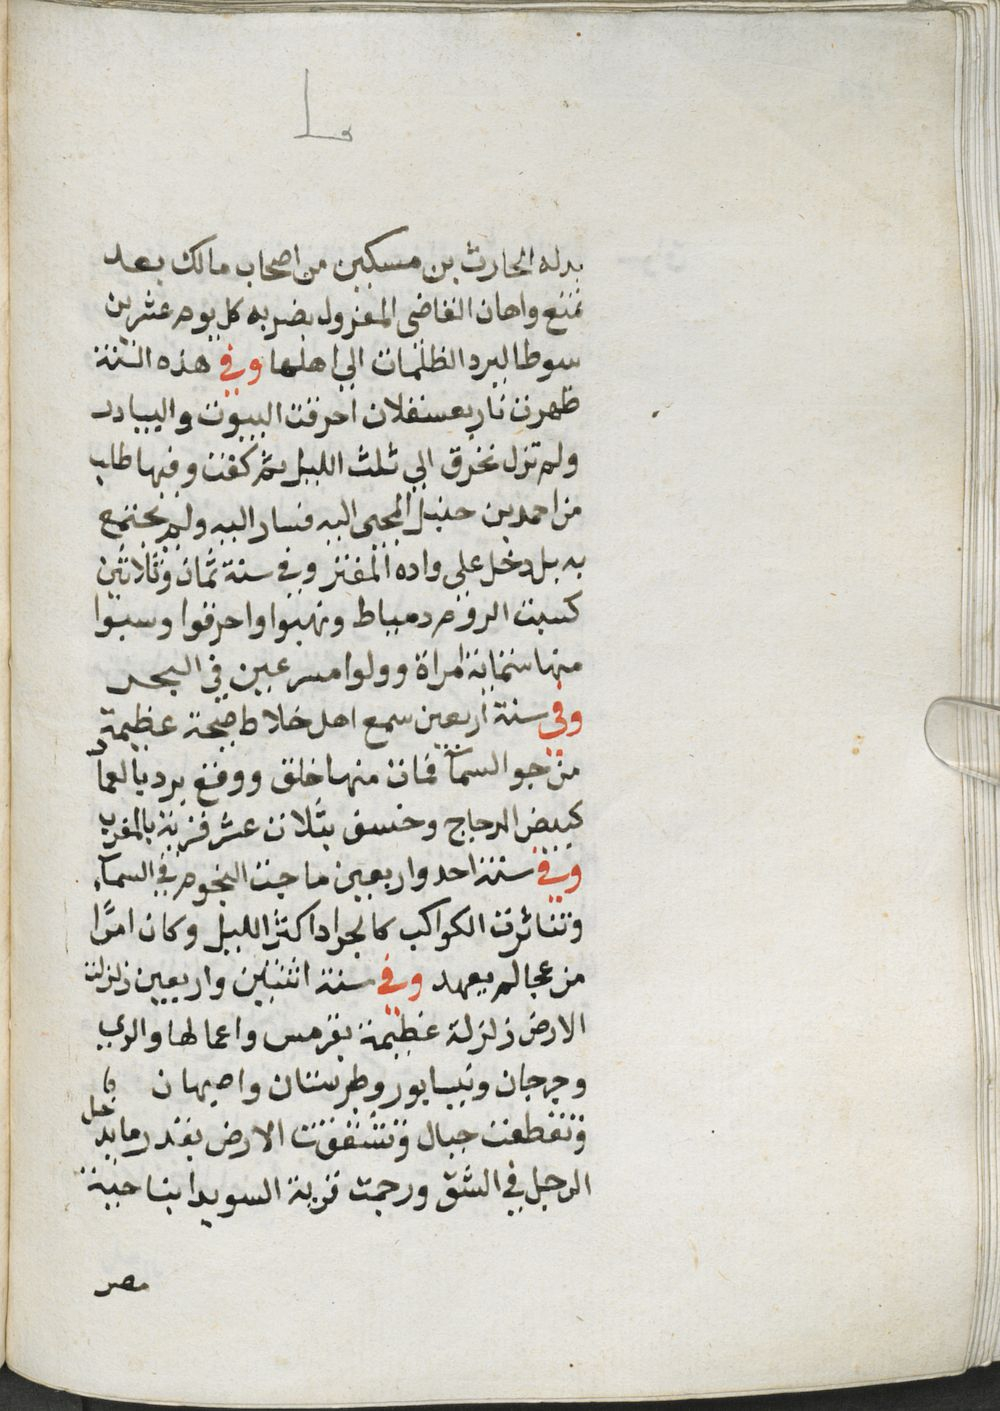 بدله الحارث بن مسكين من اصحاب مالك بعد
تمنع واهان القاضى المعزول بضربه كل يوم عشرين
سوطا ليرد الظلمات الي اهلها وفي هذه السنة
ظهرت نار بعسقلان احرقت البيوت والبيادر
ولم تزل تحرق الي ثلث الليل ثم كفت وفيها طلب
من احمد بن حنبل المجى اليه فسار اليه ولم يجتمع
به بل دخل على ولده المعتز وفي سنة ثمان وثلاثين
كبست الروم دمياط ونهبوا واحرقوا وسبوا
منها ستمائة امراة وولوا مسرعين في البحر
وفي سنة اربعين سمع اهل خلاط صيحة عظيمة
من جو السمآ فمات منها خلق ووقع برد بالعراق
كبيض الدجاج وخسف بثلاث عشر قرية بالمغرب
وفي سنة احد واربعين ماجت النجوم في السمآء
وتناثرت الكواكب كالجراد اكثر الليل وكان امرًا
مزعجا لم يعهد وفي سنة اثنين واربعين زلزلت
الارض زلزلة عظيمة بقومس واعمالها والري
وجرجان ونيسابور وطبرستان واصبهان
وتقطعت جبال وتشققت الارض بقدر ما يدخل
الرجل في الشق ورجمت قرية السويدا بناحية
مصر